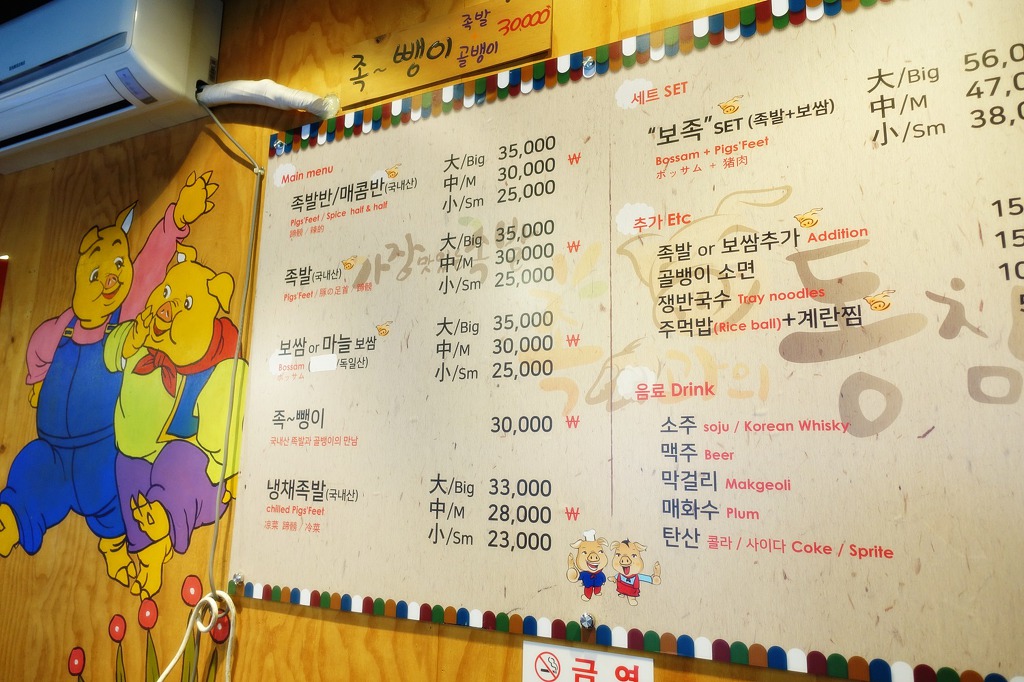 SAMSUNG
족~뺑이 족발 골뱅이 30,000
Main menu
족발반/매콤반(국내산)
Pigs'Feet / Spice half & half
大/Big 35,000
中/M 30,000 ₩
小/Sm 25,000
족발(국내산)
Pigs'Feet / 豚の足首
大/Big 35,000
中/M 30,000 ₩
小/Sm 25,000
보쌈 or 마늘 보쌈
Bossam ( /독일산)
ボッサム
大/Big 35,000
中/M 30,000 ₩
小/Sm 25,000
족~뺑이
국내산 족발과 골뱅이의 만남
30,000 ₩
냉채족발(국내산)
chilled Pigs'Feet
大/Big 33,000
中/M 28,000 ₩
小/Sm 23,000
세트 SET
"보족"SET (족발+보쌈)
Bossam + Pigs'Feet
ボッサム + 猪肉
大/Big 56,0
中/M 47,0
小/Sm 38,0
추가 Etc
족발 or 보쌈추가 Addition 15
골뱅이 소면 15
쟁반국수 Tray noodles 10
주먹밥(Rice ball)+계란찜
음료 Drink
소주 soju / Korean Whisky
맥주 Beer
막걸리 Makgeoli
매화수 Plum
탄산 콜라 / 사이다 Coke / Sprite
금연